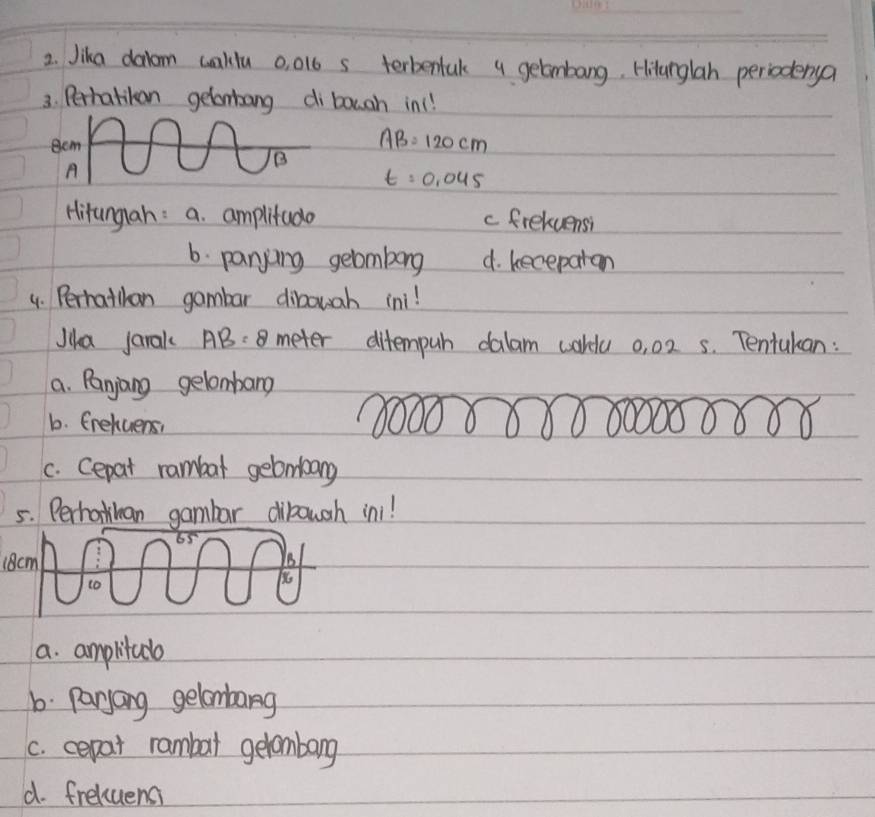 2. Jika dalam waktu 0,016 s terbentuk 4 gelombang. Hitunglah periodenya
3. Perhatikan gelombang dibawah ini!
8cm
A
B
AB = 120 cm
t = 0,04s
Hitunglah: a. amplitudo
c frekuensi
b. panjang gelombang
d. kecepatan
4. Perhatikan gambar dibawah ini!
Jika jarak AB = 8 meter ditempuh dalam waktu 0,02 s. Tentukan:
a. Panjang gelombang
b. frekuensi
c. Cepat rambat gelombang
5. Perhatikan gambar dibawah ini!
18cm
6s
10
B
a. amplitudo
b. Panjang gelombang
c. cepat rambat gelombang
d. frekuensi